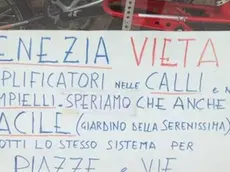 ENEZIA VIETA
PLIFICATORI NELLE CALLI E N
MPIELLI - SPERIAMO CHE ANCHE
ACILE (GIARDINO DELLA SERENISSIMA)
OTTI LO STESSO SISTEMA PER
PIAZZE E VIE